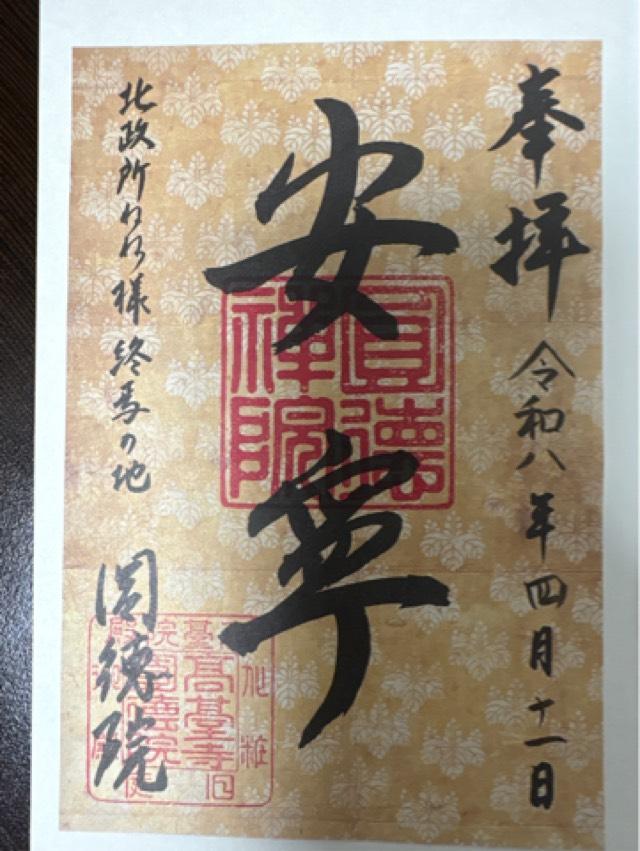 奉拝 令和八年四月十一日
安寧
圓德
禪院
北政所ねね様 終焉の地
圓徳院
化粧
高臺寺